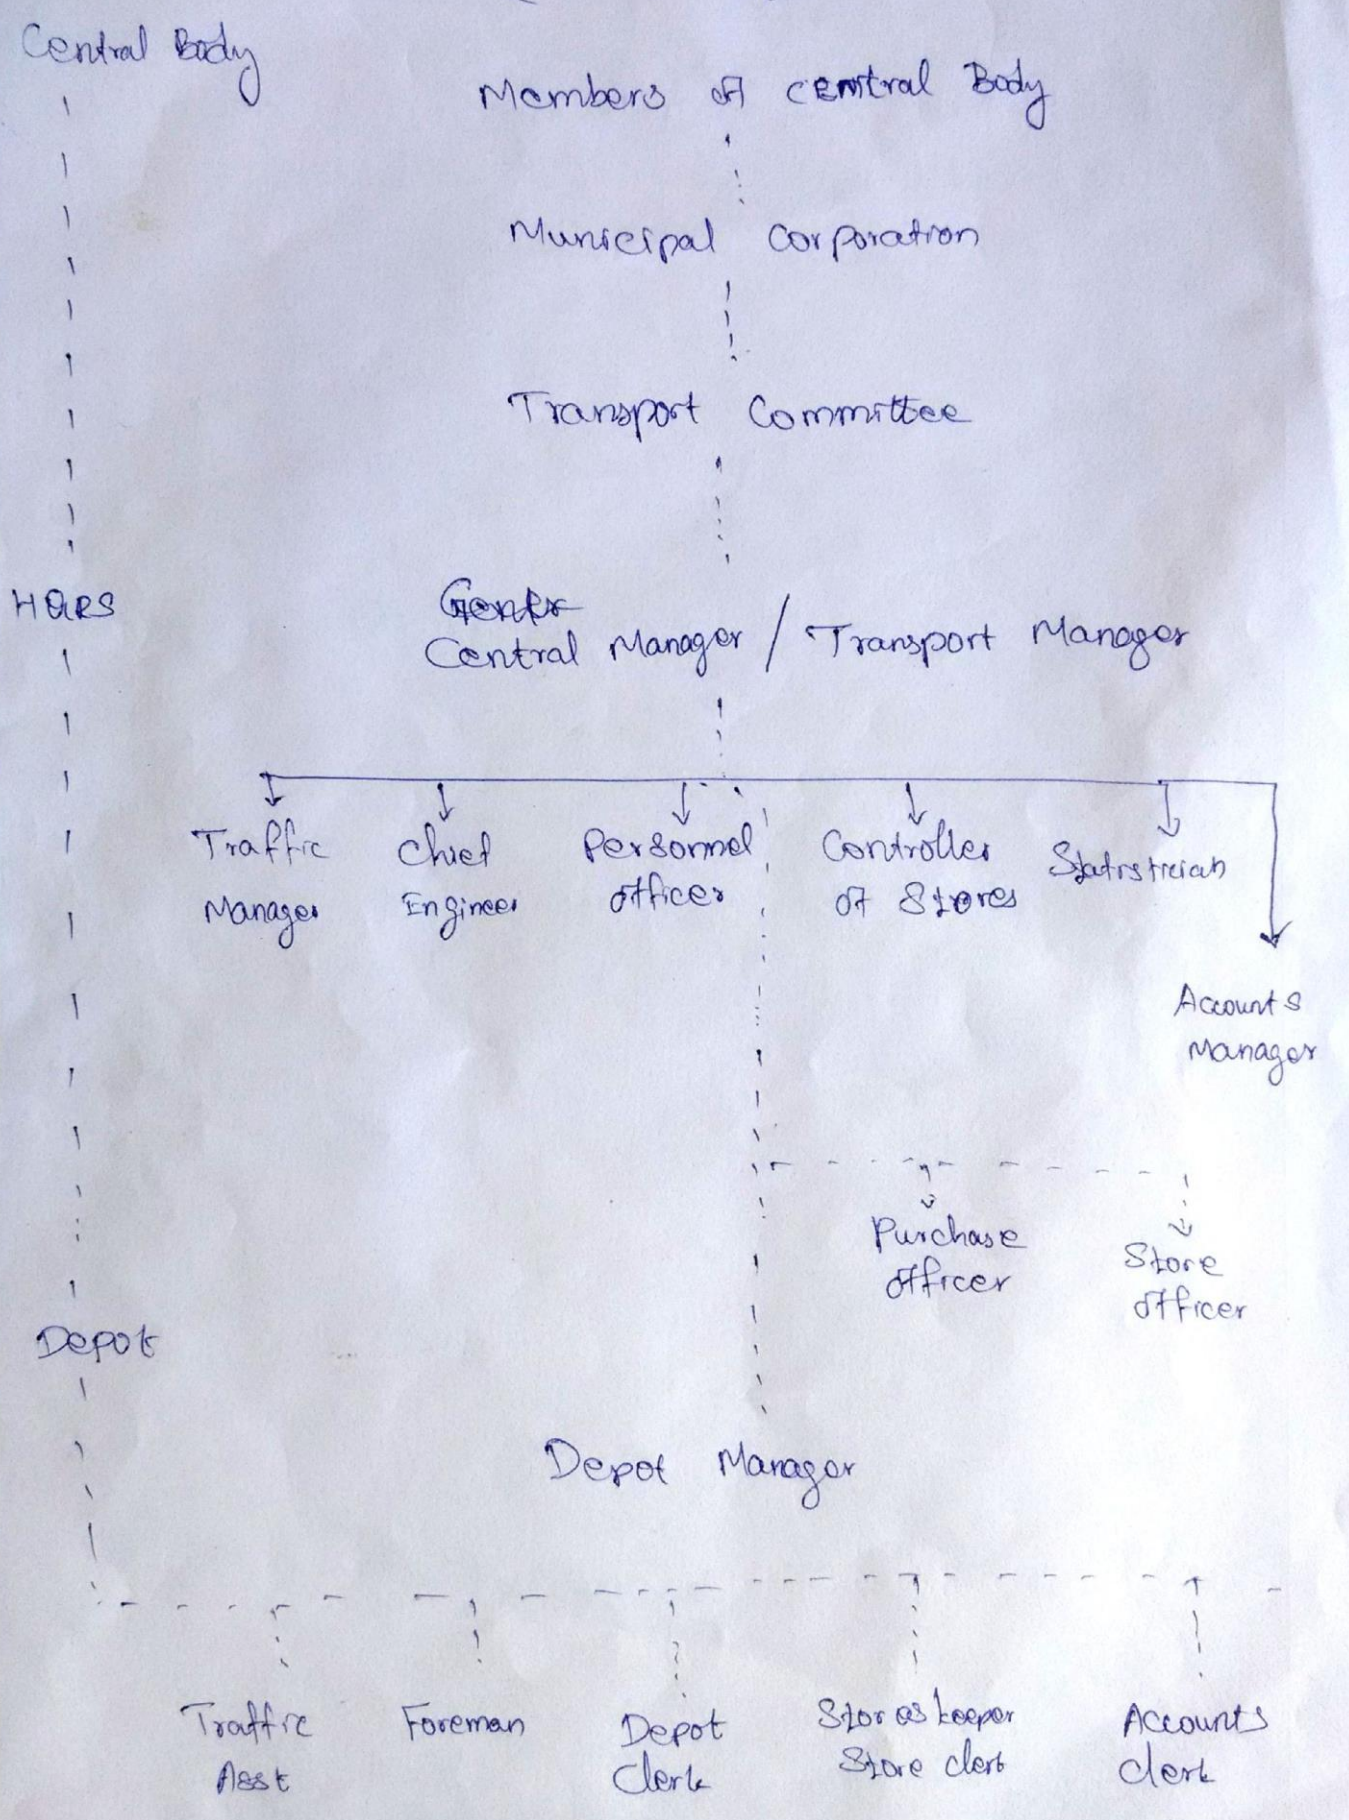 Central Body
Members of central Body
Municipal corporation
Transport Committee
HQRS
Central Manager / Transport Manager
Traffic
Manager
Chief
Engineer
Personnel
officer
Controller
of Stores
Statistician
Accounts
Manager
Purchase
officer
Store
officer
Depot
Depot Manager
Traffic
Asst
Foreman
Depot
Clerk
Stores keeper
Store clerk
Accounts
clerk